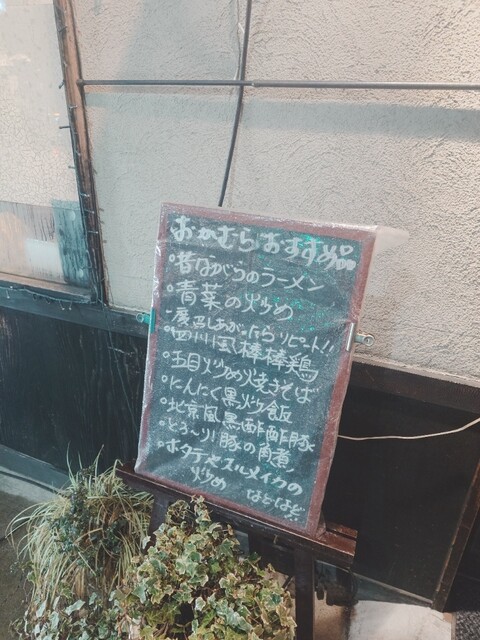 おかむらおすすめ品
°昔ながらのラーメン
°青菜の炒め
一度召しあがったらリピート!!
°四川風棒棒鶏
°五目炒め焼きそば
°にんにく黒炒飯
°北京風黒酢酢豚
°とろ〜り豚の角煮
°ホタテやスルメイカの
炒め
などなど